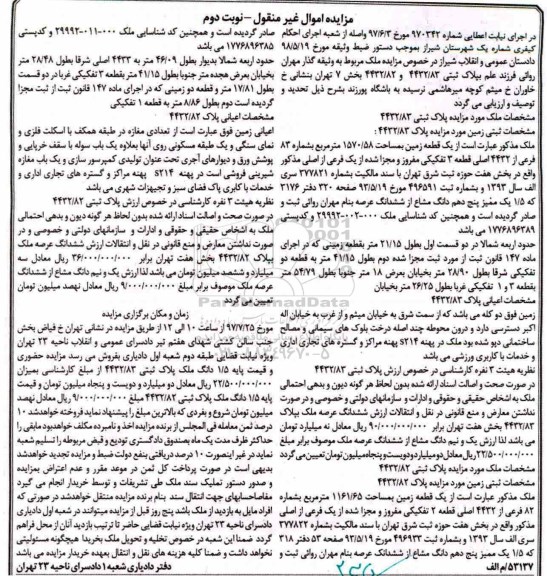 مزایده اموال غیر منقول - نوبت دوم
در اجرای نیابت اعطایی شماره ۹۷۰۳۴۲ مورخ ۹۷/۶/۳ واصله از شعبه اجرای احکام
کیفری شماره یک شهرستان شیراز بموجب دستور ضبط وثیقه مورخ ۹۸/۵/۱۹
دادستان عمومی و انقلاب شیراز در خصوص مزایده ملک مربوط به وثیقه گذار مهران
روائی فرزند علم بپلاک ثبتی ۴۴۳۲/۸۳ و ۴۴۳۲/۸۲ بخش ۷ تهران بنشانی خ
خاوران خ میثم کوچه میرهاشمی نرسیده به باشگاه پورزند بشرح ذیل تحدید و
توصیف و ارزیابی می گردد
مشخصات ملک مورد مزایده پلاک ثبتی ۴۴۳۲/۸۳
مشخصات ثبتی زمین مورد مزایده پلاک ۴۴۳۲/۸۳ :
ملک مذکور عبارت است از یک قطعه زمین بمساحت ۱۵۷۰/۵۸ مترمربع بشماره ۸۳
فرعی از ۴۴۳۲ اصلی قطعه ۳ تفکیکی مفروز و مجزا شده از یک فرعی از اصلی مذکور
واقع در بخش هفت حوزه ثبت شرق تهران با سند مالکیت بشماره ۳۷۷۸۲۱ سری
الف سال ۱۳۹۳ و بشماره ثبت ۴۹۶۵۹۱ مورخ ۹۳/۵/۱۹ صفحه ۳۲۰ دفتر ۲۱۷۶
که ۱/۵ یک ممیز پنج دهم دانگ مشاع از ششدانگ عرصه بنام مهران روائی ثبت و
صادر گردیده است و همچنین کد شناسایی ملک ۰۰۰-۰۰۲-۲۹۹۹۲ و کدپستی
۱۷۷۶۸۹۶۳۸۹ می باشد
حدود اربعه شمالا در دو قسمت اول بطول ۲۱/۱۵ متر بقطعه زمینی که در اجرای
ماده ۱۴۷ قانون ثبت از مورد ثبت مجزا شده دوم بطول ۴۱/۱۵ متر به قطعه دو
تفکیکی شرقا بطول ۲۸/۹۰ متر بخیابان بعرض ۱۸ متر جنوبا بطول ۵۴/۷۹ متر
بقطعه ۳ و ۱ تفکیکی غربا بطول ۲۶/۲۵ متر بخیابان
مشخصات اعیانی پلاک ۴۴۳۲/۸۳
زمین فوق دو کله می باشد که از سمت شرق به خیابان میثم و از غرب به خیابان اله
اکبر دسترسی دارد و درون محوطه چند اصله درخت بلوک های سیمانی و مصالح
ساختمانی دپو شده بود ملک در پهنه S۲۱۴ پهنه مراکز و گستره های تجاری اداری
و خدمات با کاربری ورزشی می باشد
نظریه هیئت ۳ نفره کارشناسی در خصوص ارزش پلاک ثبتی ۴۴۳۲/۸۳
در صورت صحت و اصالت اسناد ارائه شده بدون لحاظ هر گونه دیون و بدهی احتمالی
ملک به اشخاص حقیقی و حقوقی و ادارات و سازمانهای دولتی و خصوصی و در صورت
نداشتن معارض و منع قانونی در نقل و انتقالات ارزش ششدانگ عرصه ملک بپلاک
۴۴۳۲/۸۳ بخش هفت تهران برابر ۹۰/۰۰۰/۰۰۰/۰۰۰ ریال معادل نه میلیارد تومان
می باشد لذا ارزش یک و نیم دانگ مشاع از ششدانگ عرصه ملک موصوف برابر مبلغ
۲۲/۵۰۰/۰۰۰/۰۰۰ ریال معادل دو میلیارد و دویست و پنجاه میلیون تومان تعیین می گردد
مشخصات ملک مورد مزایده پلاک ثبتی ۴۴۳۲/۸۲
مشخصات ثبتی زمین مورد مزایده پلاک ۴۴۳۲/۸۲
ملک مذکور عبارت است از یک قطعه زمین بمساحت ۱۱۶۱/۶۵ مترمربع بشماره
۸۲ فرعی از ۴۴۳۲ اصلی قطعه ۲ تفکیکی مفروز و مجزا شده از یک فرعی از اصلی
مذکور واقع در بخش هفت حوزه ثبت شرق تهران با سند مالکیت بشماره ۳۷۷۸۲۲
سری الف سال ۱۳۹۳ و بشماره ثبت ۴۹۶۹۳۳ مورخ ۹۳/۵/۱۹ صفحه ۵۳ دفتر ۳۱۸
که ۱/۵ یک ممیز پنج دهم دانگ مشاع از ششدانگ عرصه بنام مهران روائی ثبت و
۵۳۱۳۷/م الف
صادر گردیده است و همچنین کد شناسایی ملک ۰۰۰-۰۱۱-۲۹۹۹۲ و کدپستی
۱۷۷۶۸۹۶۳۸۵ می باشد
حدود اربعه شمالا بدیوار بطول ۴۶/۰۹ متر به ۴۴۳۳ اصلی شرقا بطول ۲۸/۴۸ متر
بخیابان بعرض هجده متر جنوبا بطول ۴۱/۱۵ متر بقطعه ۳ تفکیکی غربا در دو قسمت
اول ۱۷/۸۱ متر و قطعه دو زمینی که در اجرای ماده ۱۴۷ قانون ثبت از ثبت مجزا
گردیده است دوم بطول ۸/۸۶ متر به قطعه ۱ تفکیکی
مشخصات اعیانی پلاک ۴۴۳۲/۸۲
اعیانی زمین فوق عبارت است از تعدادی مغازه در طبقه همکف با اسکلت فلزی و
نمای سنگی و یک طبقه مسکونی روی آنها بعلاوه یک باب سوله با سقف خرپایی و
پوشش ورق و دیوارهای آجری تحت عنوان تولیدی کمپرسور سازی و یک باب مغازه
شیرینی فروشی است در پهنه S۲۱۴ پهنه مراکز و گستره های تجاری اداری و
خدمات با کابری پاک فضای سبز و تجهیزات شهری می باشد
نظریه هیئت ۳ نفره کارشناسی در خصوص ارزش پلاک ثبتی ۴۴۳۲/۸۲
در صورت صحت و اصالت اسناد ارائه شده بدون لحاظ هر گونه دیون و بدهی احتمالی
ملک به اشخاص حقیقی و حقوقی و ادارات و سازمانهای دولتی و خصوصی و در
صورت نداشتن معارض و منع قانونی در نقل و انتقالات ارزش ششدانگ عرصه ملک
بپلاک ۴۴۳۲/۸۲ بخش هفت تهران برابر ۳۶/۰۰۰/۰۰۰/۰۰۰ ریال معادل سه
میلیارد و ششصد میلیون تومان می باشد لذا ارزش یک و نیم دانگ مشاع از ششدانگ
عرصه ملک موصوف برابر مبلغ ۹/۰۰۰/۰۰۰/۰۰۰ ریال معادل نهصد میلیون تومان
تعیین می گردد
زمان و مکان برگزاری مزایده
مورخ ۹۷/۷/۲۵ از ساعت ۱۰ الی ۱۲ از طریق مزایده در نشانی تهران خ فیاض بخش
جنب سالن کشتی شهدای هفتم تیر دادسرای عمومی و انقلاب ناحیه ۲۳ تهران
ویژه نیابت قضایی طبقه دوم شعبه اول دادیاری بفروش می رسد مزایده حضوری
و قیمت پایه ۱/۵ دانگ ملک پلاک ثبتی ۴۴۳۲/۸۳ از مبلغ کارشناسی بمیزان
۲۲/۵۰۰/۰۰۰/۰۰۰ ریال معادل دو میلیارد و دویست و پنجاه میلیون تومان و قیمت
پایه ۱/۵ دانگ پلاک ثبتی ۴۴۳۲/۸۲ مبلغ ۹/۰۰۰/۰۰۰/۰۰۰ ریال معادل نهصد
میلیون تومان شروع و بفردی که بالاترین مبلغ را پیشنهاد نماید فروخته خواهد شد ۱۰
درصد ثمن معامله فی المجلس از برنده مزایده اخذ و نامبرده مکلف خواهد بود مابقی را
حداکثر ظرف مدت یک ماه بصندوق دادگستری تودیع و قبض مربوطه را تسلیم شعبه
نماید در غیر اینصورت ۱۰ درصد دریافتی بنفع دولت ضبط و مزایده تجدید خواهد شد
بدیهی است در صورت پرداخت کل ثمن در موعد مقرر و عدم اعتراض بمزایده
و صدور دستور تملیک سند ملک طی تشریفات و توسط خریدار انجام می گیرد
مفاصاحسابهای جهت انتقال سند بنام برنده مزایده منتقل خواهد شد در صورتی که
افراد مایل به بازدید از ملک باشد پنج روز قبل از مزایده میتوانند در شعبه اول دادیاری
دادسرای ناحیه ۲۳ تهران ویژه نیابت قضایی حاضر تا ترتیب بازدید آنان از محل فراهم
گردد ضمنا این شعبه در خصوص تخلیه و تحویل ملک بخریدار هیچگونه مسئولیتی
نخواهد داشت و ضمنا کلیه هزینه های نقل و انتقال بعهده خریدار مزایده می باشد
دفتر دادیاری شعبه ۱ دادسرای ناحیه ۲۳ تهران